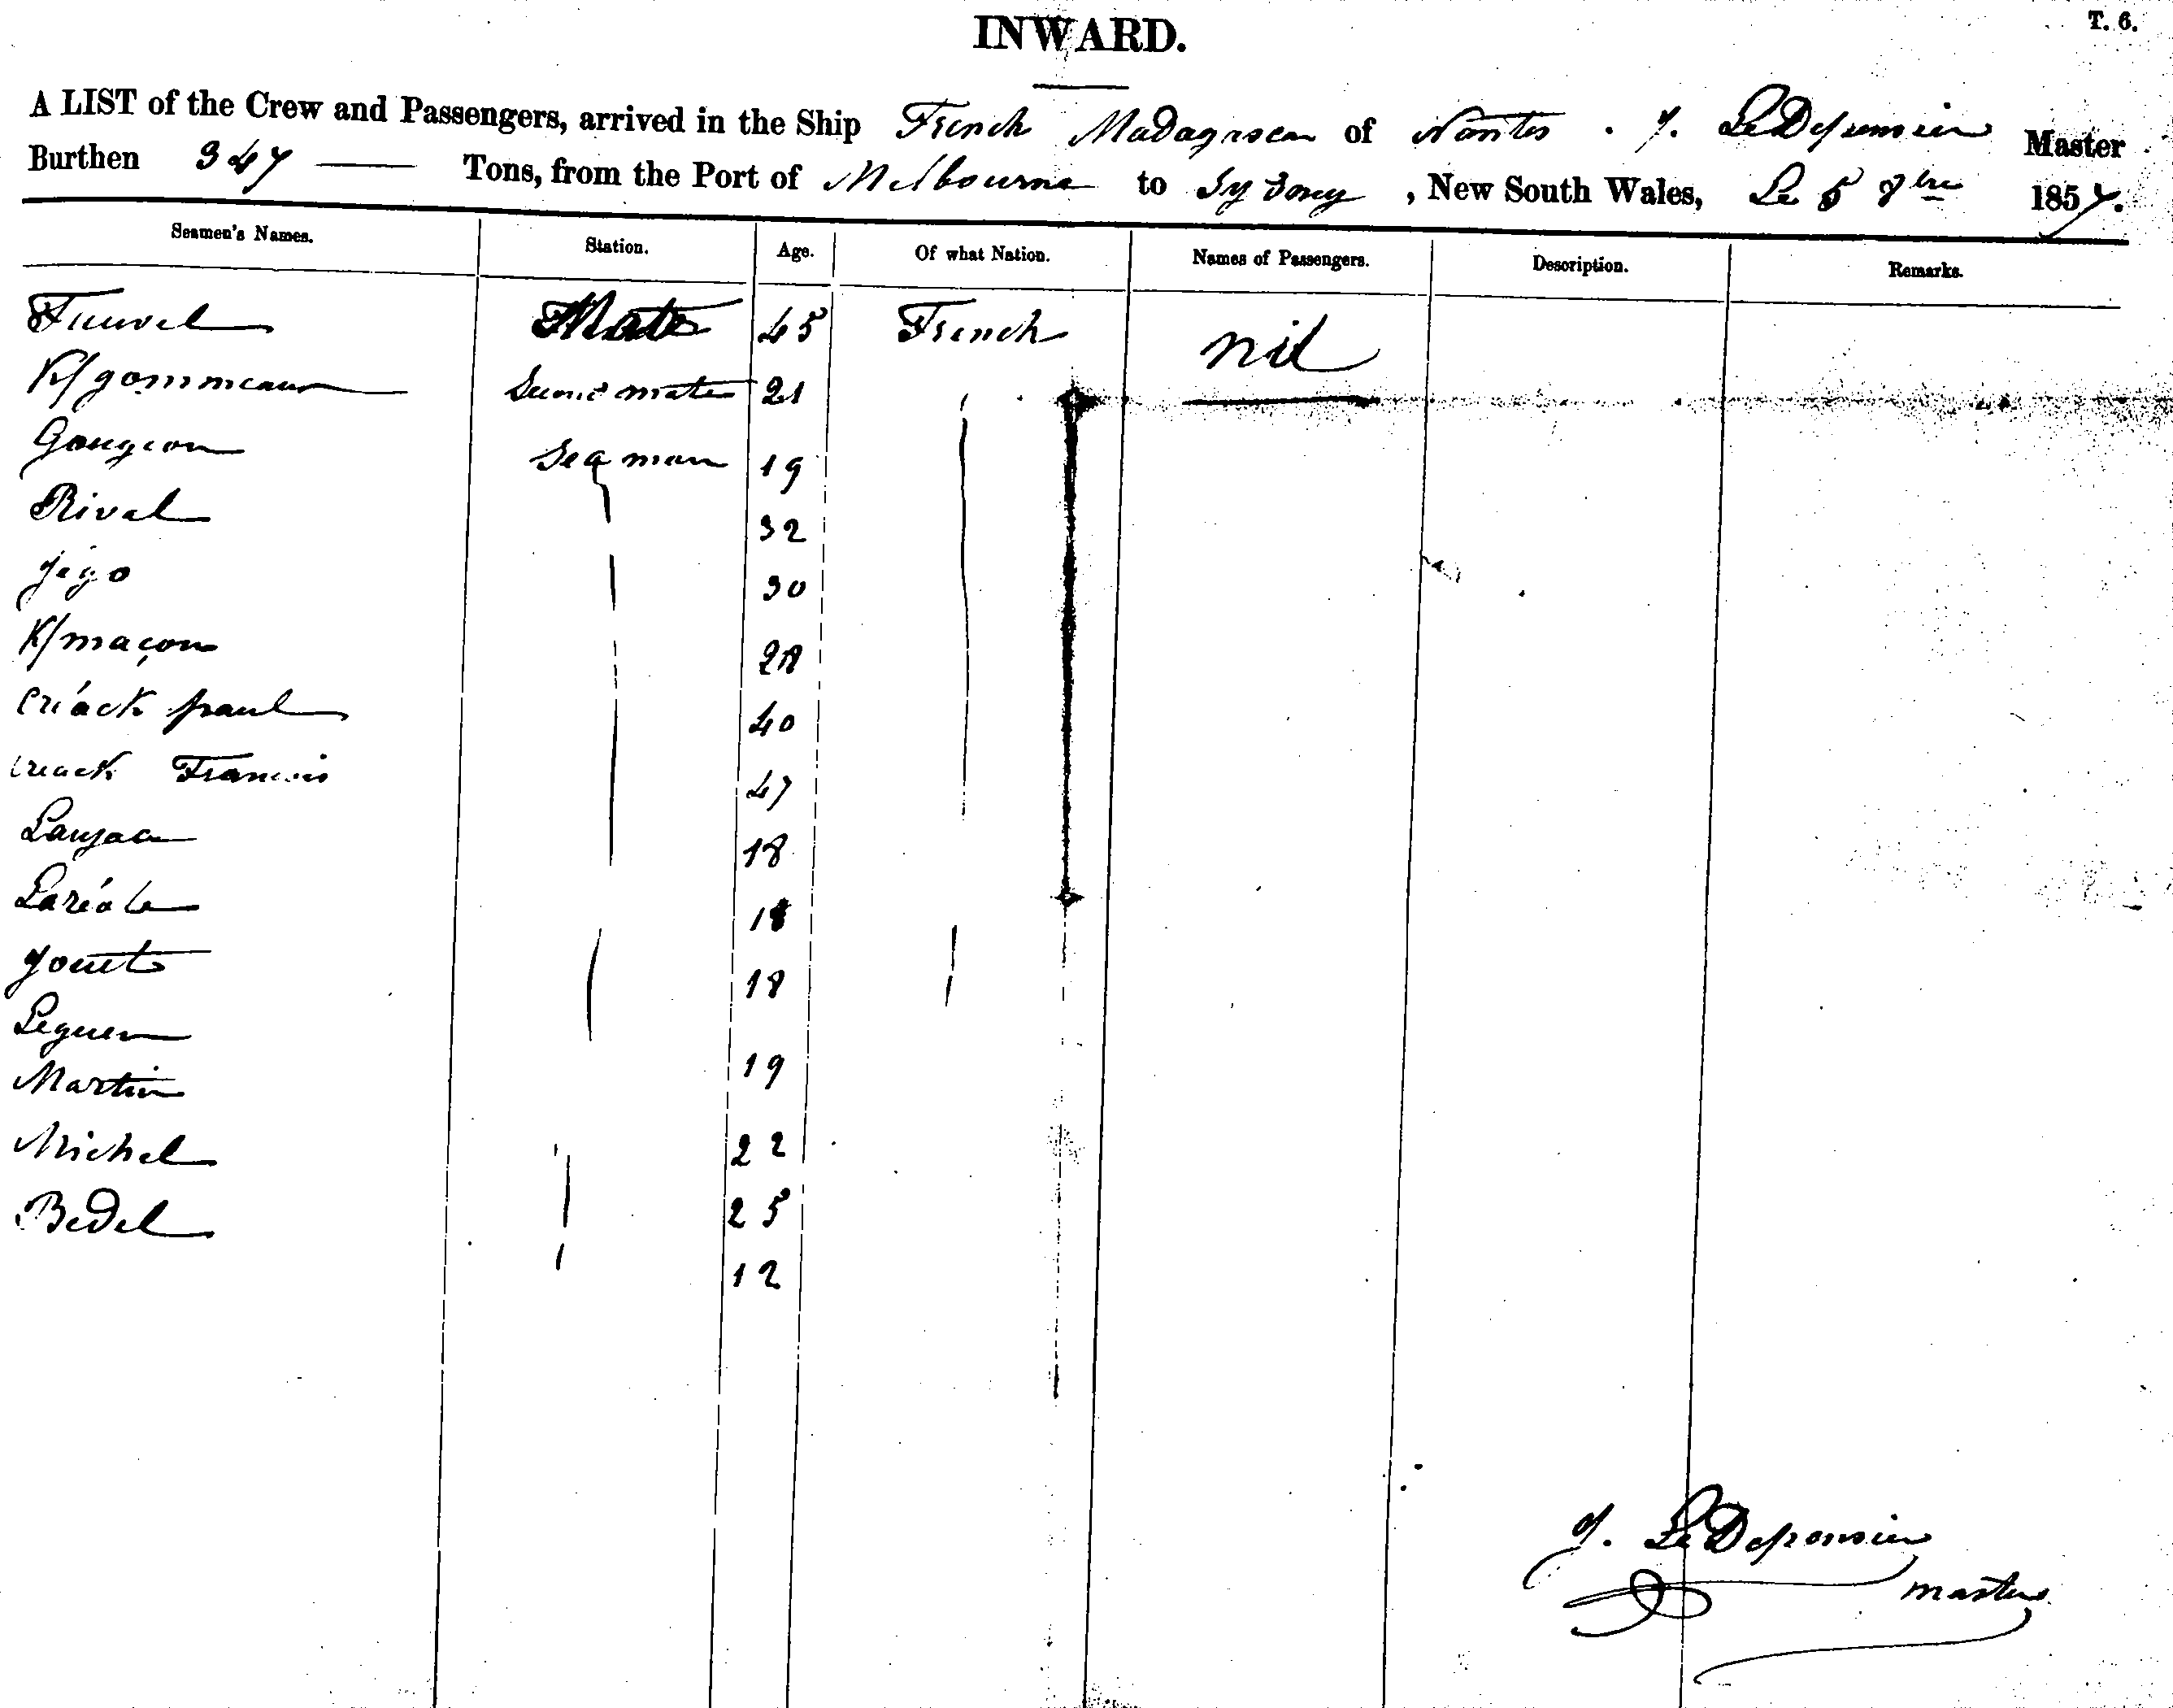 INWARD.
T. 6.
A LIST of the Crew and Passengers, arrived in the Ship French Madagascar of Nantes . J. Master
Burthen 347 Tons, from the Port of Melbourne to Sydney , New South Wales, Le 5 8bre 1857.
Seamen's Names. Station. Age. Of what Nation. Names of Passengers. Description. Remarks.
Fauvel Mate 45 French nil
K/gommeaux Second mate 21
Gougeon Seaman 19
Rival 32
Jégo 30
K/maçon
Créack paul 40
Créack Francois 47
18
18
Jouet 18
Leguen
Martin 19
Michel 22
Bedel 25
12
J. Le Deponsier
master